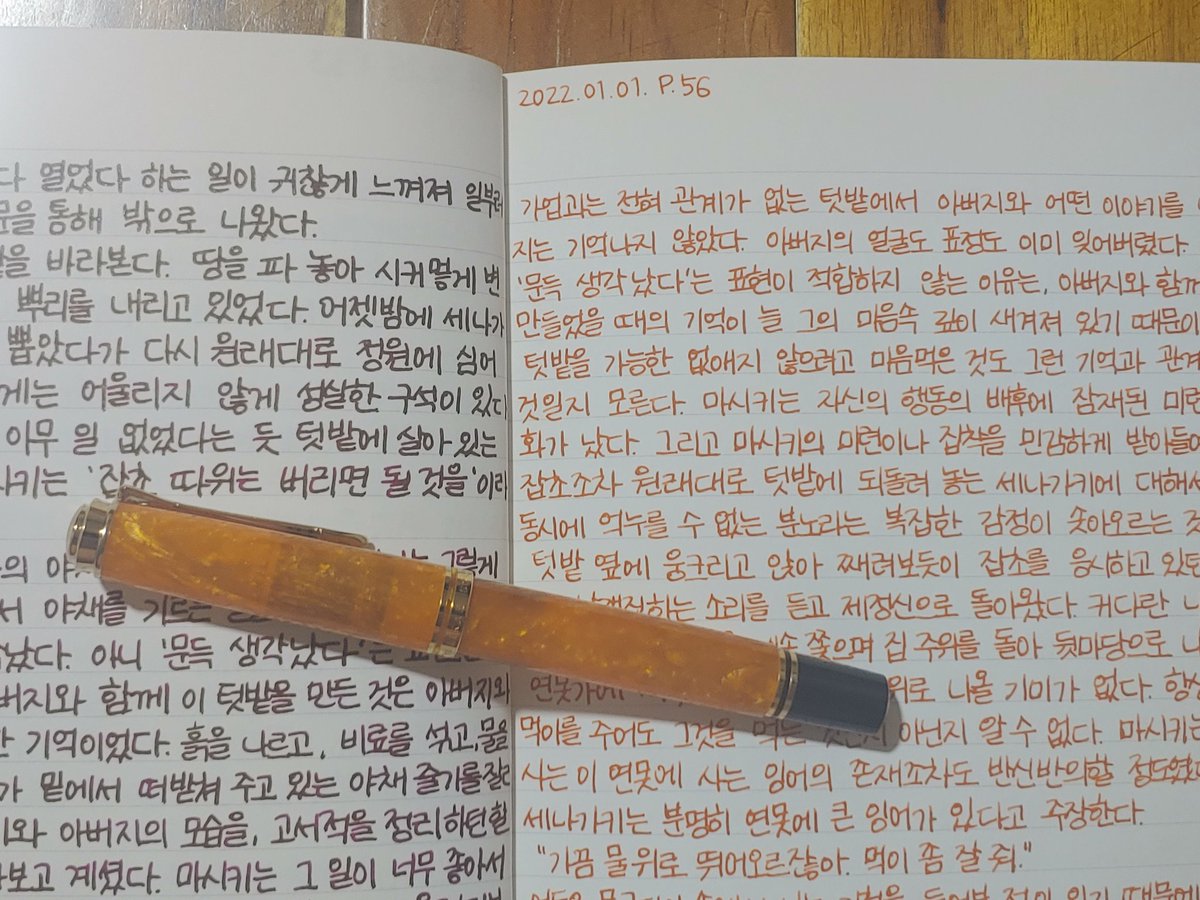 다 열었다 하는 일이 귀찮게 느껴져 일부러
문을 통해 밖으로 나왔다.
을 바라본다. 땅을 파 놓아 시커멓게 변
뿌리를 내리고 있었다. 어젯밤에 세나가
뽑았다가 다시 원래대로 정원에 심어
게는 어울리지 않게 성실한 구석이 있다
아무 일 없었다는 듯 텃밭에 살아 있는
시키는 '잡초 따위는 버리면 될 것을'이라
의 그렇게
서 야채를
났다. 아니 '문득 생각났다'는
버지와 함께 이 텃밭을 만든 것은 아버지와
기억이었다. 흙을 나르고, 비료를 섞고, 물을
가 밑에서 떠받쳐 주고 있는 야채 줄기를 잘라
와 아버지의 모습을, 고서적을 정리하던 할
보고 계셨다. 마시키는 그 일이 너무 좋아서
2022.01.01. P.56
가업과는 전혀 관계가 없는 텃밭에서 아버지와 어떤 이야기를
지는 기억나지 않았다. 아버지의 얼굴도 표정도 이미 잊어버렸다.
'문득 생각났다'는 표현이 적합하지 않는 이유는, 아버지와 함께
만들었을 때의 기억이 늘 그의 마음속 깊이 새겨져 있기 때문이
텃밭을 가능한 없애지 않으려고 마음먹은 것도 그런 기억과 관계
것일지 모른다. 마시키는 자신의 행동의 배후에 잠재된 미련
화가 났다. 그리고 마시키의 미련이나 집착을 민감하게 받아들여
잡초조차 원래대로 텃밭에 되돌려 놓는 세나가키에 대해서
동시에 억누를 수 없는 분노라는 복잡한 감정이 솟아오르는 것
텃밭 옆에 웅크리고 앉아 째려보듯이 잡초를 응시하고 있던
소리를 듣고 제정신으로 돌아왔다. 커다란
쫓으며 집 주위를 돌아 뒷마당으로 나
연못가에 위로 나올 기미가 없다. 행
먹이를 주어도 그것을 먹는 것인지 아닌지 알 수 없다. 마시키는
사는 이 연못에 사는 잉어의 존재조차도 반신반의할 정도였다
세나가키는 분명히 연못에 큰 잉어가 있다고 주장한다.
"가끔 물 위로 뛰어오르잖아. 먹이 좀 잘 줘."